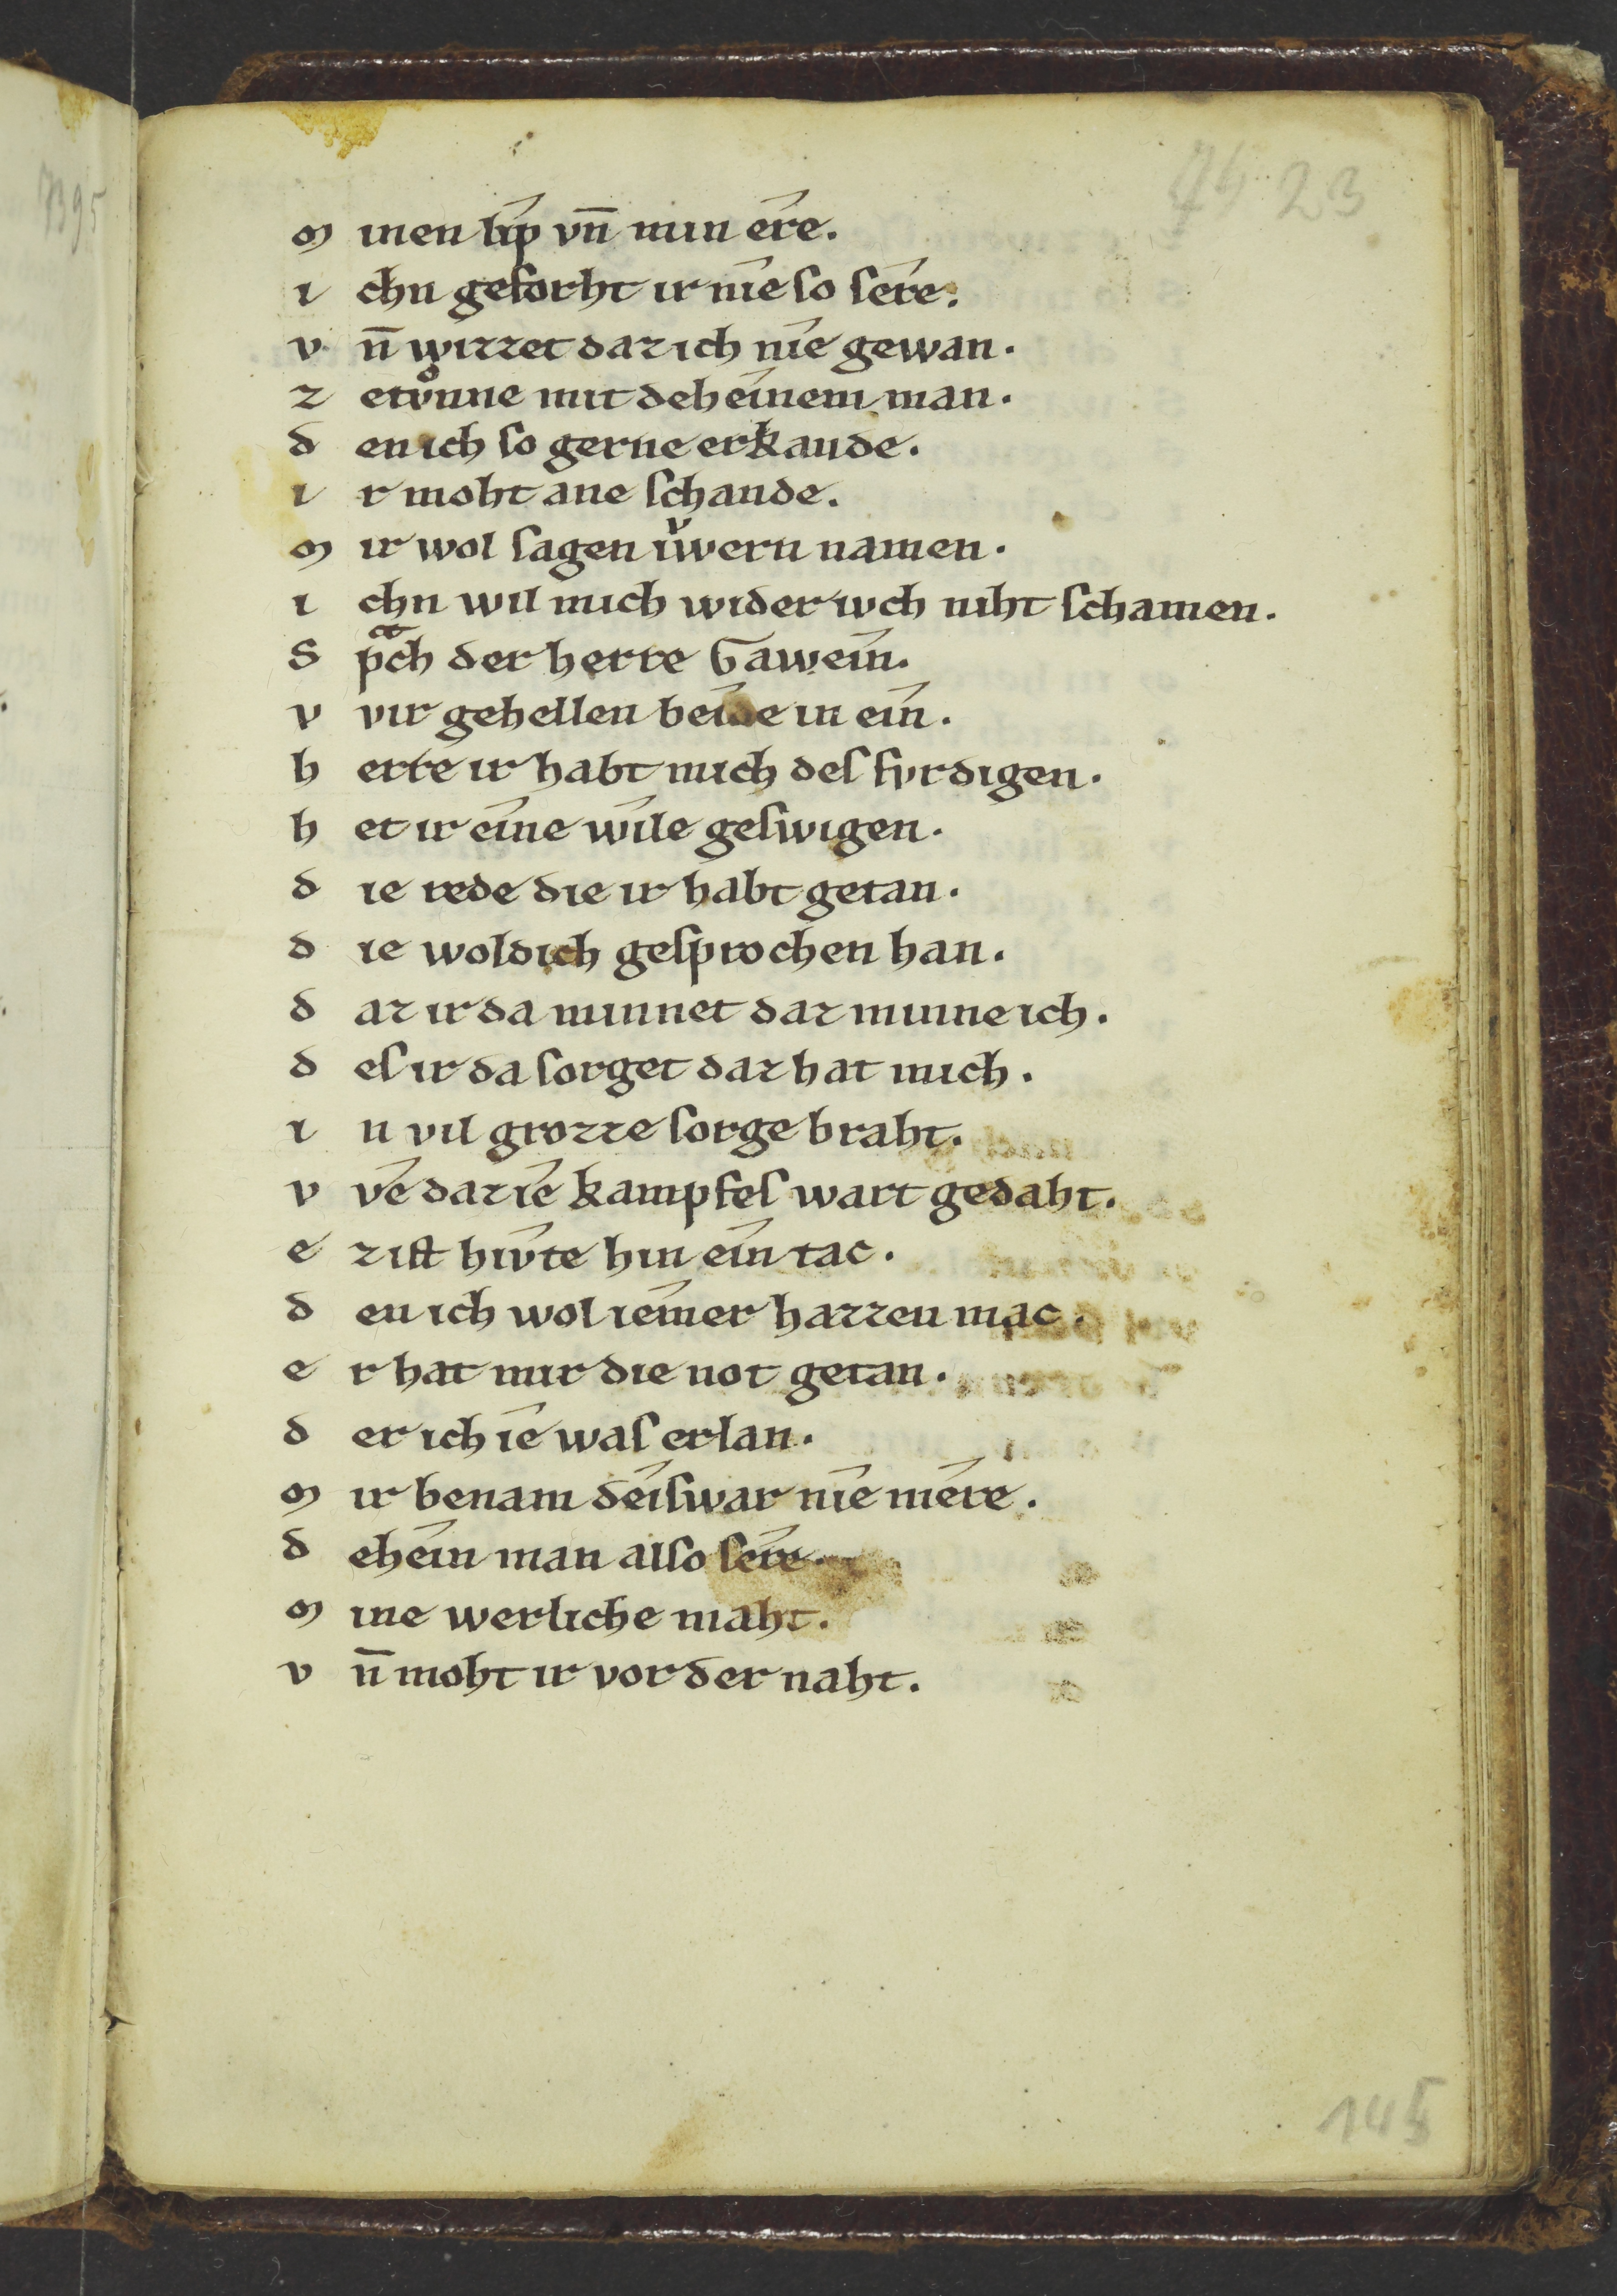 7423
7395
M inen lip vn̄ min ere.
i chn gesorht ir nie so sere.
v n̄ wirret daz ich nie gewan.
z etvͦnne mit deheinem man.
d en ich so gerne erkande.
i r moht ane schande.
M ir wol sagen iwͮern namen.
i chn wil mich wider iwch niht schamen.
S pͣch der herre Gawein.
v vir gehellen beide in ein.
h erre ir habt mich des fvrdigen.
h et ir eine wile geswigen.
d ie rede die ir habt getan.
d ie woldich gesprochen han.
d az ir da minnet daz minne ich.
d es ir da sorget daz hat mich.
i n vil grozze sorge braht.
v ve daz ie kampfes wart gedaht.
e z ist hivte hin ein tac.
d en ich wol iemer hazzen mac.
e r hat mir die not getan.
d er ich ie was erlan.
M ir benam deiswar nie mere.
d ehein man also sere.
M ine werliche maht.
v n̄ moht ir vor der naht.
145